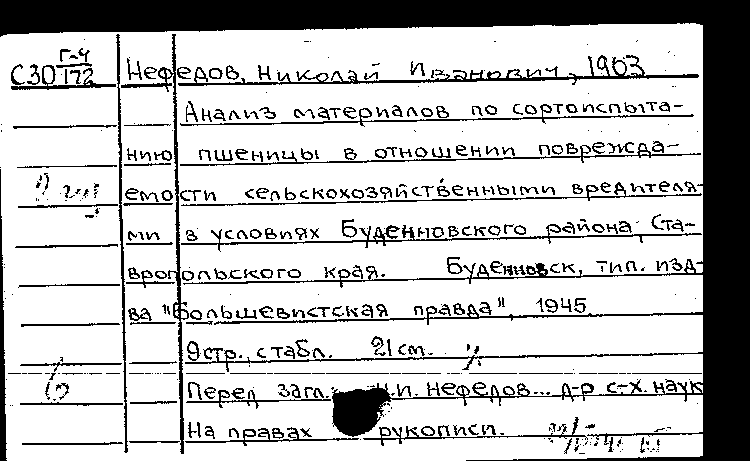 Г-4
С30 172 Нефедов, Николай Иванович, 1903
Анализ материалов по сортоиспыта-
нию пшеницы в отношении поврежда-
емости сельскохозяйственными вредителя-
ми в условиях Буденновского района, Ста-
вропольского края. Буденновск, тип. изд-
ва "Большевистская правда", 1945
9стр., с табл. 21 см.
Перед загл.: Н.И. Нефедов... д-р с-х. наук
б
На правах рукописи.